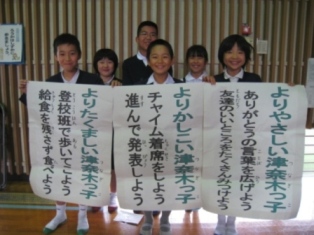 よりやさしい津奈木っ子
ありがとうの言葉を広げよう
友達のいいところをたくさんみつけよう
よりかしこい津奈木っ子
チャイム着席をしよう
進んで発表しよう
よりたくましい津奈木っ子
登校班で歩いてこよう
給食を残さず食べよう